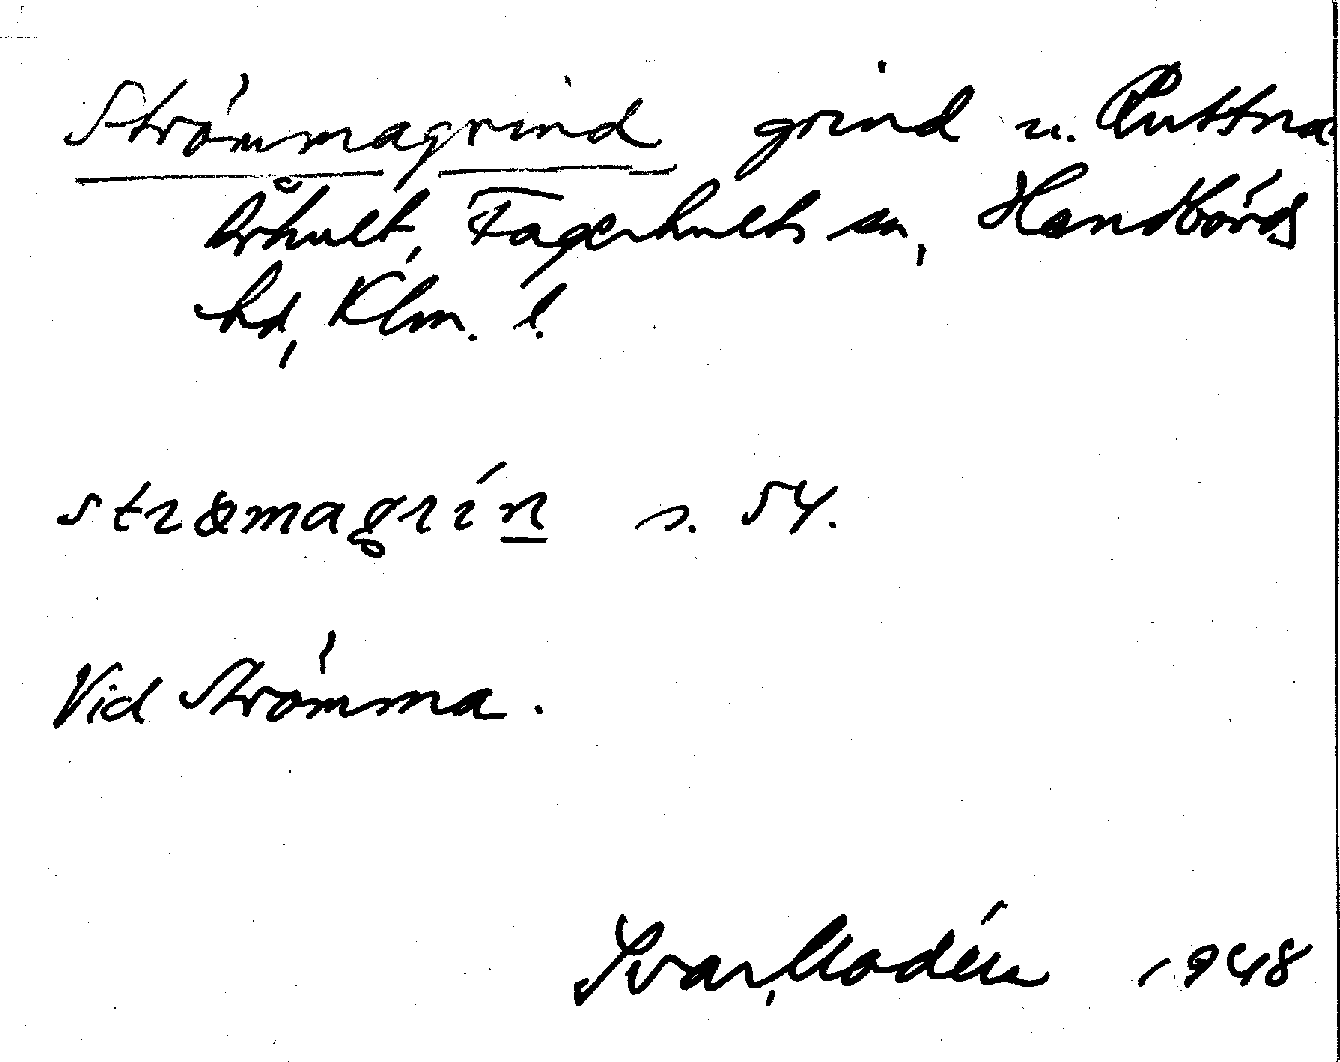 Strömmagrind grind u. Ruttna
Århult, Fagerhults sn, Handbörds
hd, Klm. l.
strømagrin s. 54.
Vid Strömma.
Ivar Modéer 1948